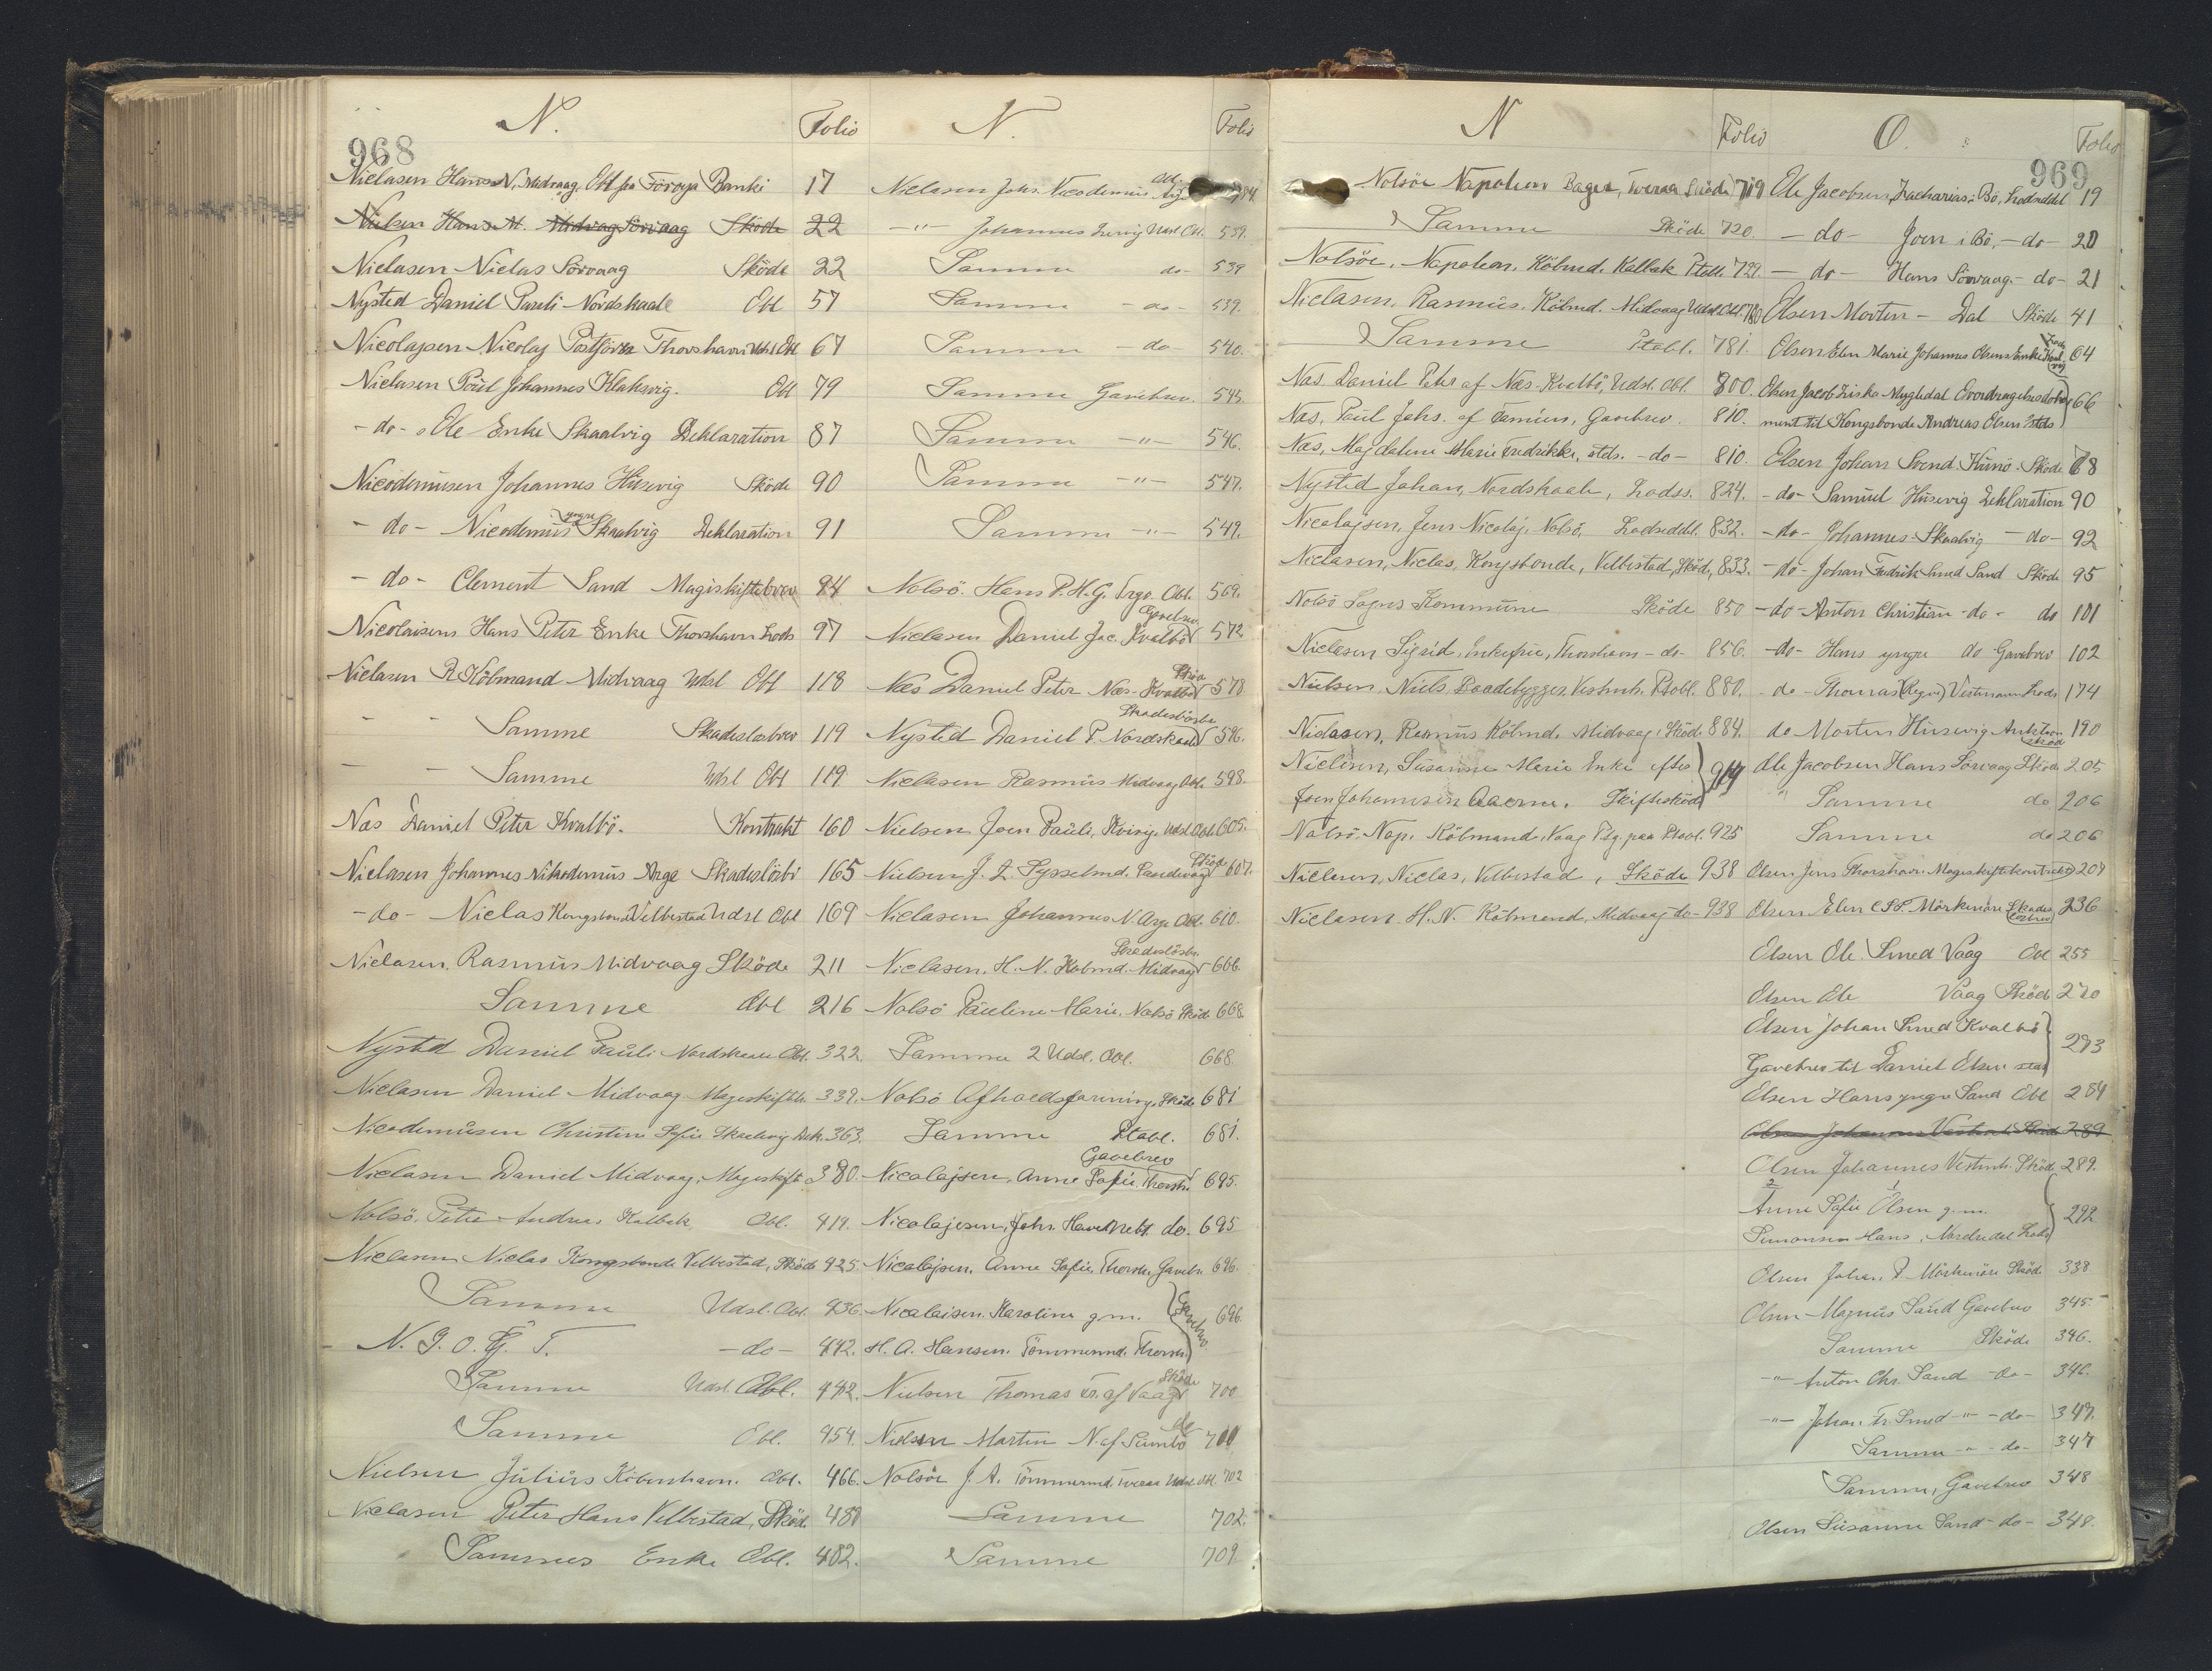 968
N. Folio
Niclasen Hans N. Midvaag. Obl fra Föroya Banki 17
Nielsen Hans M. Midvag Sörvaag Sköde 22
Niclasen Niclas Sörvaag Sköde 22
Nysted Daniel Pauli Nordskaale Obl 57
Nicolajsen Nicolaj Postförer Thorshavn Udsl Obl 67
Niclasen Poul Johannes Klaksvig. Obl 79
- do - Ole Enke Skaalvig Deklaration 87
Nicodemusen Johannes Húsevig Sköde 90
- do - Nicodemus yngre Skaalvig Deklaration 91
- do - Clement Sand Mageskiftebrev 94
Nicolaisens Hans Peter Enke Thorshavn Lods 97
Niclasen R Kölmand Midvaag Udsl Obl 118
- - Samme Skadeslosbrev 119
- - Samme Udsl Obl 119
Næs Daniel Peter Kvalbö. Kontrakt 160
Niclasen Johannes Nikodemus Arge Skadeslösbr 165
- do - Niclas Kongsbonde Velbestad Udsl Obl 169
Niclasen. Rasmus Midvaag Sköde 211
Samme Obl 216
Nysted Daniel Pauli Nordskaale Obl. 322
Niclasen Daniel Midvaag Mageskiftbr. 339.
Nicodemusen Christine Sofie Skaalvig Dek. 363.
Niclasen Daniel Midvaag. Mageskift. 380.
Nolsö. Peter Andreas Kalbak Obl. 419.
Niclasen Niclas Kongsbonde Velbestad, Sköde 425.
Samme Udsl. Obl. 436.
N. J. O. G. T. - do - 442.
Samme Udsl. Obl. 442.
Samme Obl. 454.
Nielsen Júliús Köbenhavn. Obl. 466.
Niclasen Peter Hans Velbestad, Sköde 481
Sammes Enke Obl. 482.
N. Folio
Niclasen Johs. Nicodemus Obl.
-"- Johannes Udsl Obl. 539.
Samme do - 539
Samme - do - 539.
Samme - do - 540.
Samme Gavebrev. 545.
Samme -"- 546.
Samme -"- 547.
Samme -"- 549.
Nolsö. Hans P. H. G. Obl. 569.
Niclasen Daniel Jac. Kvalbö Gavebrev 572
Næs Daniel Peter Næs-Kvalbö 578
Nysted Daniel P. Nordskaale Skadeslösbr 596.
Niclasen Rasmús Midvaag Obl. 598.
Nielsen Joen Paúli, Udsl. Obl. 605.
Nielsen J. L. Sysselmd. Sandevaag Sköd 607.
Niclasen Johannes N. Arge Obl. 610.
Niclasen. H. N. Kobmd. Midvaag Skadeslösbr. 666.
Nolsö Páuline Marie. Nolsö Sköde 668.
Samme 2 Udsl. Obl. 668.
Nolsö Afholdsforening. Sköde 681
Samme Ptobl. 681.
Nicolajsen. Anne Sofie. Thorsh. Gavebrev 695.
Nicolajsen, Johs. do. 695
Nicolajsen. Anne Sofie. Thorsh. Gavebr. 696.
Nicolaisen. Karoline g.m. Gavebrev 696.
H. A. Hansen. Tömmermd. Thorsh.
Nielsen Thomas Fr. af Vaag Sköde 700
Nielsen Martin N. af Sumbö do 700
Nolsöe J. A. Tömmermd. Tveraa Udsl. Obl. 702
Samme 702.
Samme 709
969
N Folio
Nolsöe Napoleon Bager, Tveraa Sköde 719
Samme Sköde 720.
Nolsöe. Napoleon. Köbmd. Kalbak Ptobl. 729.
Niclasen, Rasmús. Köbmd. Midvaag Udsl. Obl. 780
Samme Ptobl. 781.
Næs Daniel Peter af Næs-Kvalbö, Udsl. Obl. 800.
Næs, Paul Johs. af Famien, Gavebrev. 810.
Næs, Magdalene Marie Fredrikke, stds. - do - 810.
Nysted Johan, Nordskaale, Lodss. 824.
Nicolajsen, Jens Nicolaj, Nolsö, Lodseddel. 832.
Niclasen, Niclas, Kongsbonde, Velbestad, Sköde, 833.
Nolsö Sogns Kommúne Sköde 850
Niclasen Sigrid, Enkefrue, Thorshavn - do - 856.
Nielsen. Niels Baadebygger, Vestmh. Ptobl. 880.
Niclasen, Rasmús Köbmd. Midvaag, Sköde 884.
Nielsen, Súsanne Marie Enke efter
Joen Johannesen Skifteskjöde 914
Nolsö. Nap. Köbmand, Vaag Ptg. paa Ptobl. 925
Niclasen, Niclas, Velbestad, Sköde 938
Niclasen H. N. Köbmand, Midvaag - do - 938
O. Folio
Ole Jacobsen, Zacharias i Bö, Lodseddel 19
- do - Joen i Bö, - do - 20
- do - Hans Sörvaag - do - 21
Olsen Morten - Dal Sköde 41
Olsen Elen Marie Johannes Olsens Enke 64
Olsen Jacob Ziska Mygledal Overdragelsesdoku
ment til Kongsbonde Andreas Olsen stds 66
Olsen Johan Svend. Kúnö. Sköde 68
- do - Samúel Húsevig Deklaration 90
- do - Johannes Skaalvig - do - 92
- do - Johan Fredrik Smed Sand Sköde 95
- do - Anton Christian - do - do 101
- do - Hans yngre do Gavebrev 102
- do - Thomas Vestmann Lods 174
do Morten Húsevig Auktions sköde 190
Ole Jacobsen Hans Sörvaag Sköde 205
" Samme do 206
Samme do 206
Olsen Jens Thorshavn. Mageskiftekontrakt 207
Olsen Elen Mörkenöre Skades lösbrev 236
Olsen Ole. Smed Vaag Obl 255
Olsen Ole Vaag Sköde 270
Olsen Johan Smed Kvalbö
Gavebrev til Daniel Olsen stds 273
Olsen Hans yngre Sand Obl 284
Olsen Johannes Vestmh. Sköde 289
Olsen Johannes Vestmh. Sköde 289.
Anne Sofie Olsen g.m.
Simonsen Hans, Nordredal Lods 292
Olsen Johan. P. Mörkenöre Sköde 338
Olsen Magnús Sand Gavebrev 345.
Samme Sköde 346.
-"- Anton Chr. Sand - do - 346.
-"- Johan Fr. Smed -"- - do - 347.
Samme -"- - do - 347
Samme, Gavebrev 348
Olsen Súsanne Sand - do - 348.